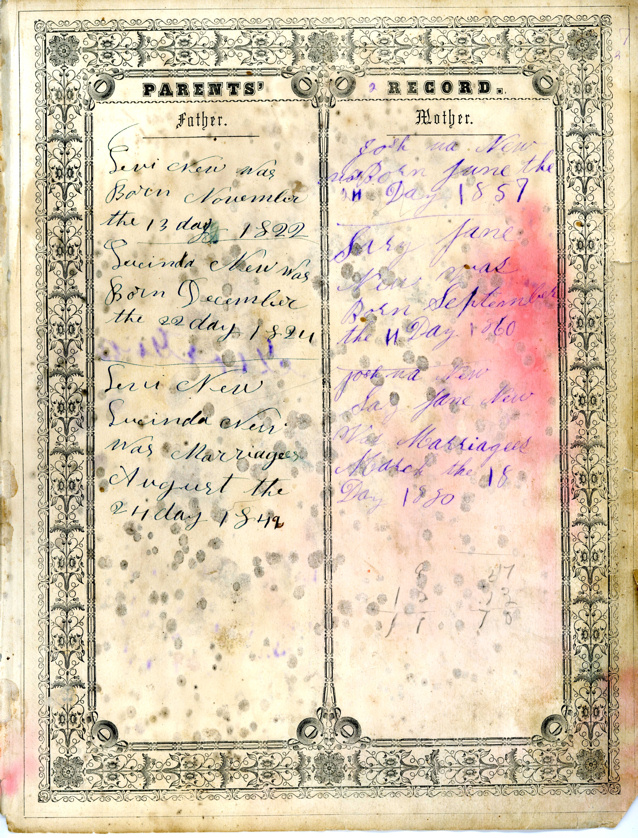 PARENTS' RECORD.
Father.
Levi New was
Born November
the 13 day 1822
Lucinda New was
Born December
the 22 day 1824
Levi New
Lucinda New
Was Marriagees
August the
24 day 1842
Mother.
New
was Born June the
11 Day 1857
Jane
New was
Born September
the 11 Day 1860
New
Jane New
Was Marriagees
March the 18
Day 1880